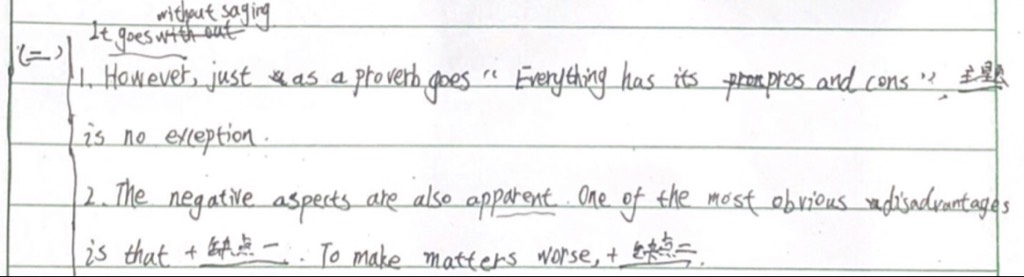 without saging
It goes with out
(二)
1. However, just as a proverb goes “ Everything has its pros and cons ”, 主题
is no exception.
2. The negative aspects are also apparent. One of the most obvious disadvantages
is that + 缺点一. To make matters worse, + 缺点二.